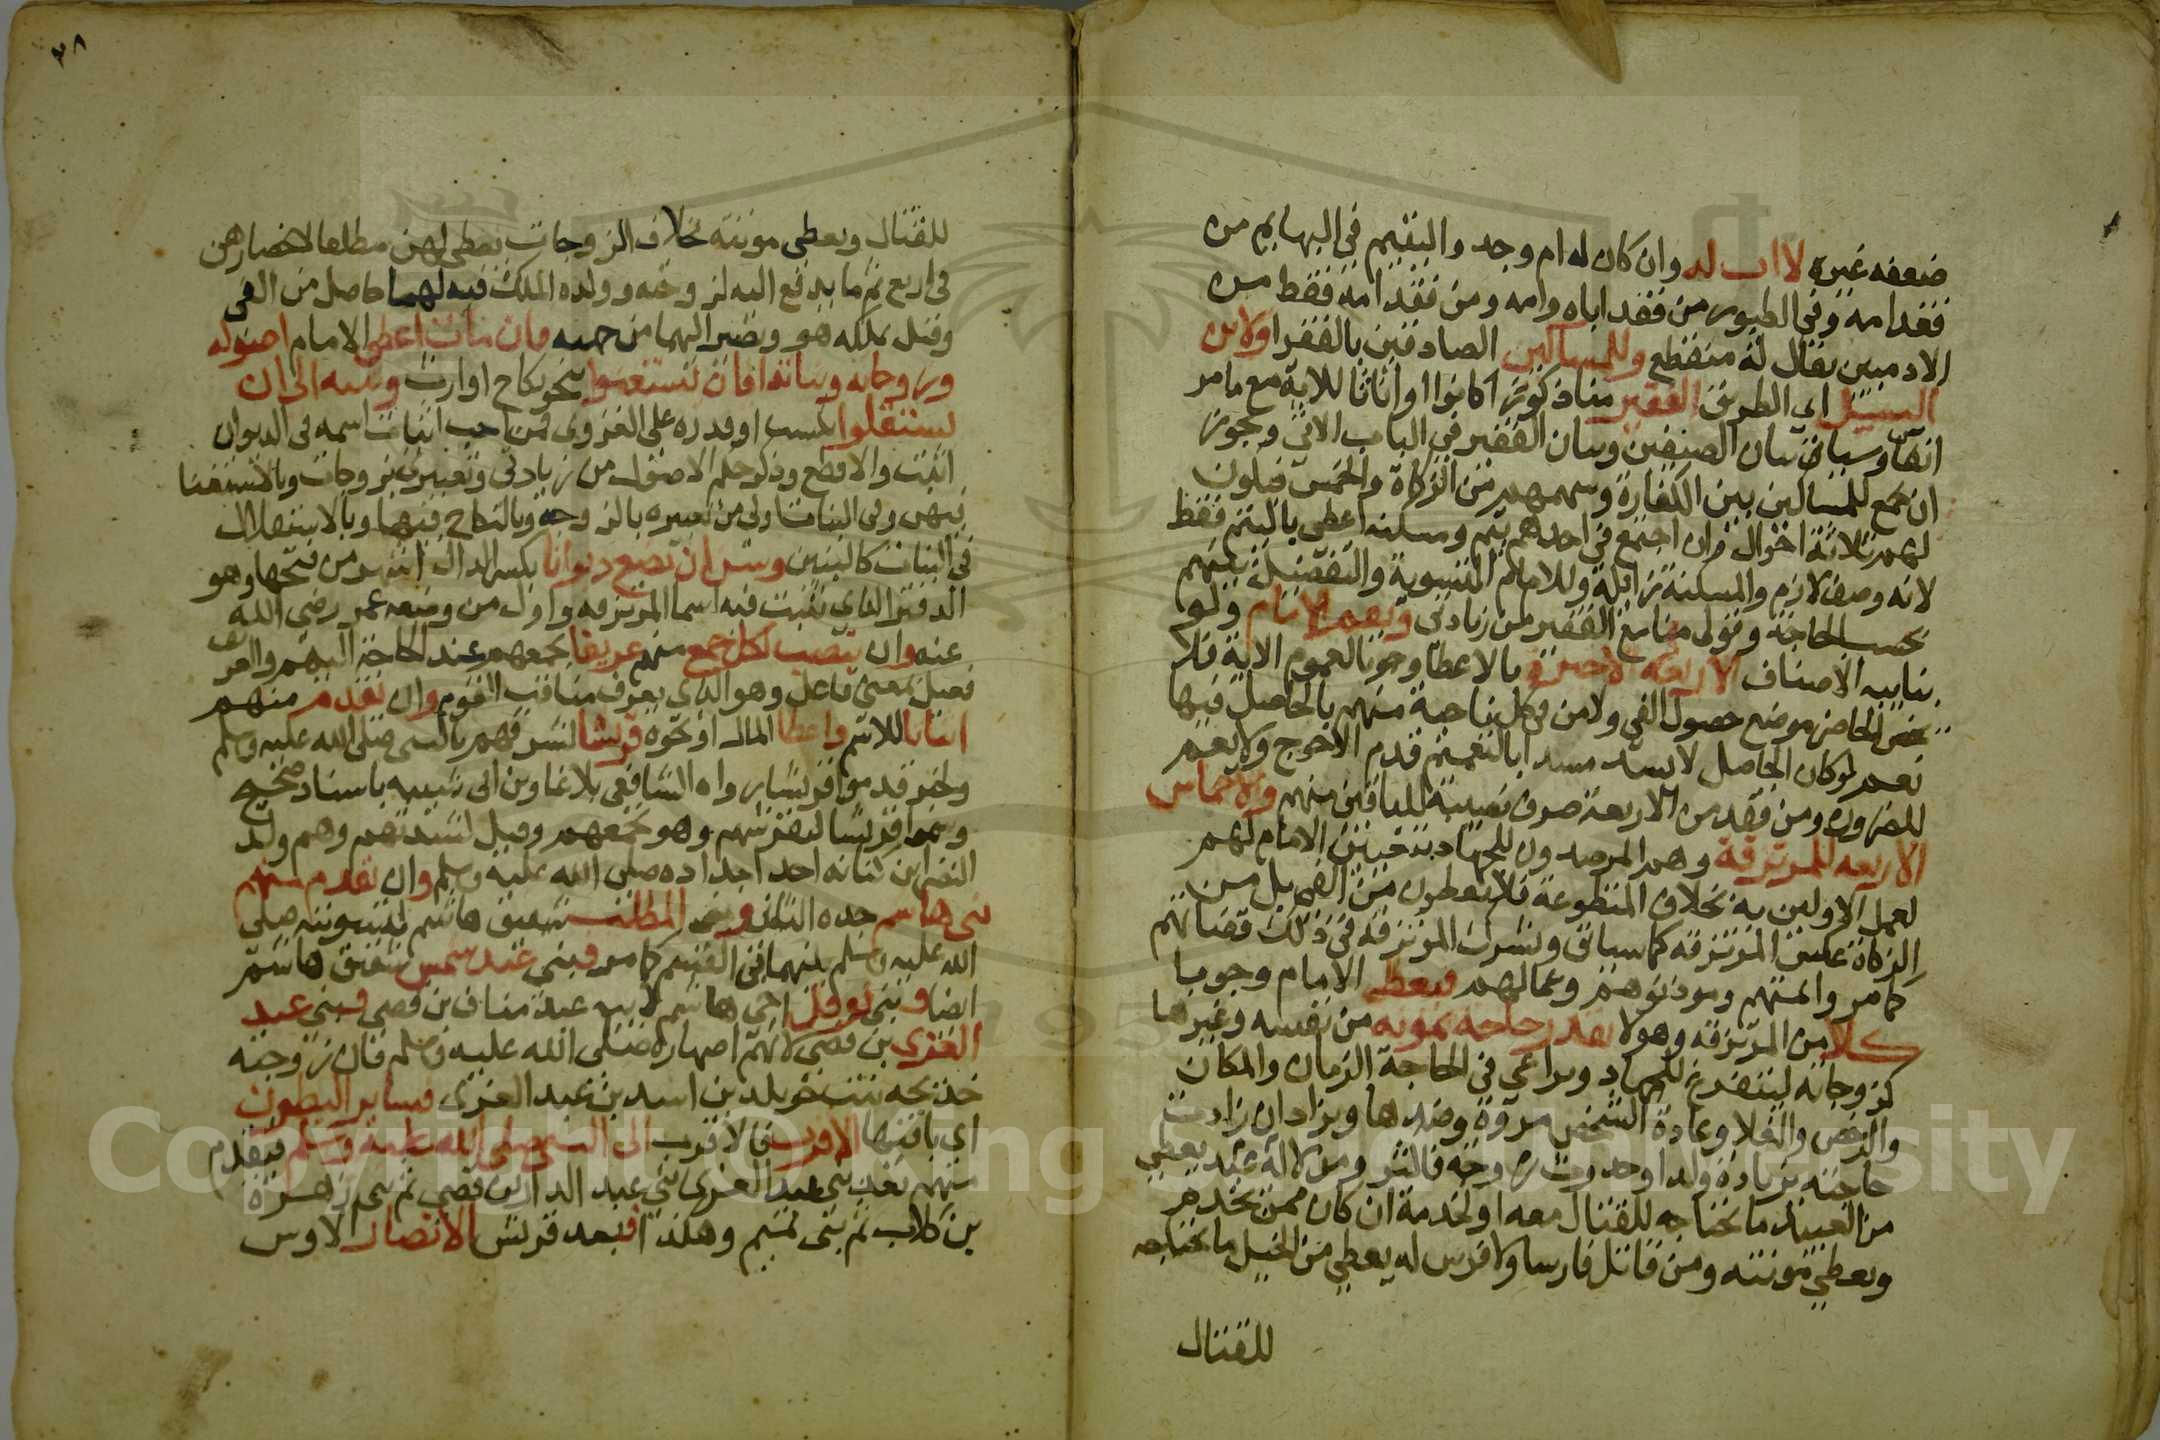 ضعفه غيره لا اب له وان كان له ام وجد واليتيم في البهايم من
فقد امه وفي الطيور من فقد اباه وامه ومن فقد امه فقط من
الادميين يقال له منقطع وللمساكين الصادقين بالفقرا ولابن
السبيل اي الطريق الفقير منا ذكورا كانوا او اناثا للاية مع ما مر
انفا وسياتي بيان الصنفين وبيان الفقير في الباب الاتي ويجوز
ان يجمع للمساكين بين الكفارة وسهمهم من الزكاة والخمس فيكون
لهم ثلاثة احوال وان اجتمع في احدهم يتم ومسكنة اعطي باليتم فقط
لانه وصف لازم والمسكنة زائلة وللامام التسوية والتفضيل بينهم
بحسب الحاجة وقولي منا مع الفقير من زيادتي ويعم الامام ولو
بنايبه الاصناف الاربعة الاخيرة بالاعطا وجوبا لعموم الاية فلا
يخص الحاضر موضع حصول الفي ولا من في كل ناحية منهم بالحاصل فيها
نعم لو كان الحاصل لا يسد مسدا بالتعميم قدم الاحوج ولا يعم
للضرورة ومن فقد من الاربعة صرف نصيبه للباقين منهم والاخماس
الاربعة للمرتزقة وهم المرصدون للجهاد بتعيين الامام لهم
لعمل الاولين به بخلاف المتطوعة فلا يعطون من الفي بل من
الزكاة عكس المرتزقة كما سياتي ويشرك المرتزقة في ذلك قضاتهم
كما مر وائمتهم وموذنوهم وعمالهم فيعطي الامام وجوبا
كلا من المرتزقة وهولا بقدر حاجة ممونه من نفسه وغيرها
كزوجاته ليتفرغ للجهاد ويراعي في الحاجة الزمان والمكان
والرخص والغلا وعادة الشخص مروة وضدها ويزاد ان زادت
حاجته بزيادة ولد او حدوث زوجة فاكثر ومن لا له عبد يعطي
من العبيد ما يحتاجه للقتال معه او لخدمة ان كان ممن يخدم
ويعطي مونته ومن قاتل فارسا ولا فرس له يعطي من الخيل ما يحتاجه
للقتال
٣٨
للقتال ويعطي مونته بخلاف الزوجات يعطي لهن مطلقا لانحصارهن
في اربع ثم ما يدفع اليه لزوجته وولده الملك فيه لهما حاصل من الفي
وقيل يملكه هو ويصير اليهما من جهته فان مات اعطي الامام اصوله
وزوجاته وبناته الى ان يستغنوا بنحو نكاح او ارث وبنيه الى ان
يستقلوا بكسب او قدرة على الغزو فمن احب اثبات اسمه في الديوان
اثبت والا قطع وذكر حكم الاصول من زيادتي وتعبيري بزوجات وبالاستغنا
فيهن وفي البنات اولى من تعبيره بالزوجة وبالنكاح فيها وبالاستقلال
في البنات كالبنين وسن ان يضع ديوانا بكسر الدال اشهر من فتحها وهو
الدفتر الذي يثبت فيه اسما المرتزقة واول من وضعه عمر رضي الله
عنه وان ينصب لكل جمع منهم عريفا يجمعهم عند الحاجة اليهم والعريف
فعيل بمعنى فاعل وهو الذي يعرف مناقب القوم وان يقدم منهم
اثباتا للاسم واعطا المال او نحوه قريشا لشرفهم بالنبي صلى الله عليه وسلم
ولخبر قدموا قريشا رواه الشافعي بلاغا وابن ابي شيبه باسناد صحيح
وسموا قريشا لتقرشهم وهو تجمعهم وقيل لشدتهم وهم ولد
النضر ابن كنانه احد اجداده صلى الله عليه وسلم وان يقدم منهم
بني هاشم جده الثاني وبني المطلب شقيق هاشم لتسويته صلى
الله عليه وسلم بينهما في القسم كما مر فبني عبد شمس شقيق هاشم
ايضا فبني نوفل اخي هاشم لابيه عبد مناف بن قصي فبني عبد
العزى بن قصي لانهم اصهاره صلى الله عليه وسلم فان زوجته
خديجه بنت خويلد بن اسد بن عبد العزى فساير البطون
اي باقيها الاقرب فالاقرب الى النبي صلى الله عليه وسلم فيقدم
منهم بعد بني عبد العزى بني عبد الدار بن قصي ثم بني زهرة
بن كلاب ثم بني تميم وهكذا فبعد قريش الانصار الاوس
Copyright © King Saud University